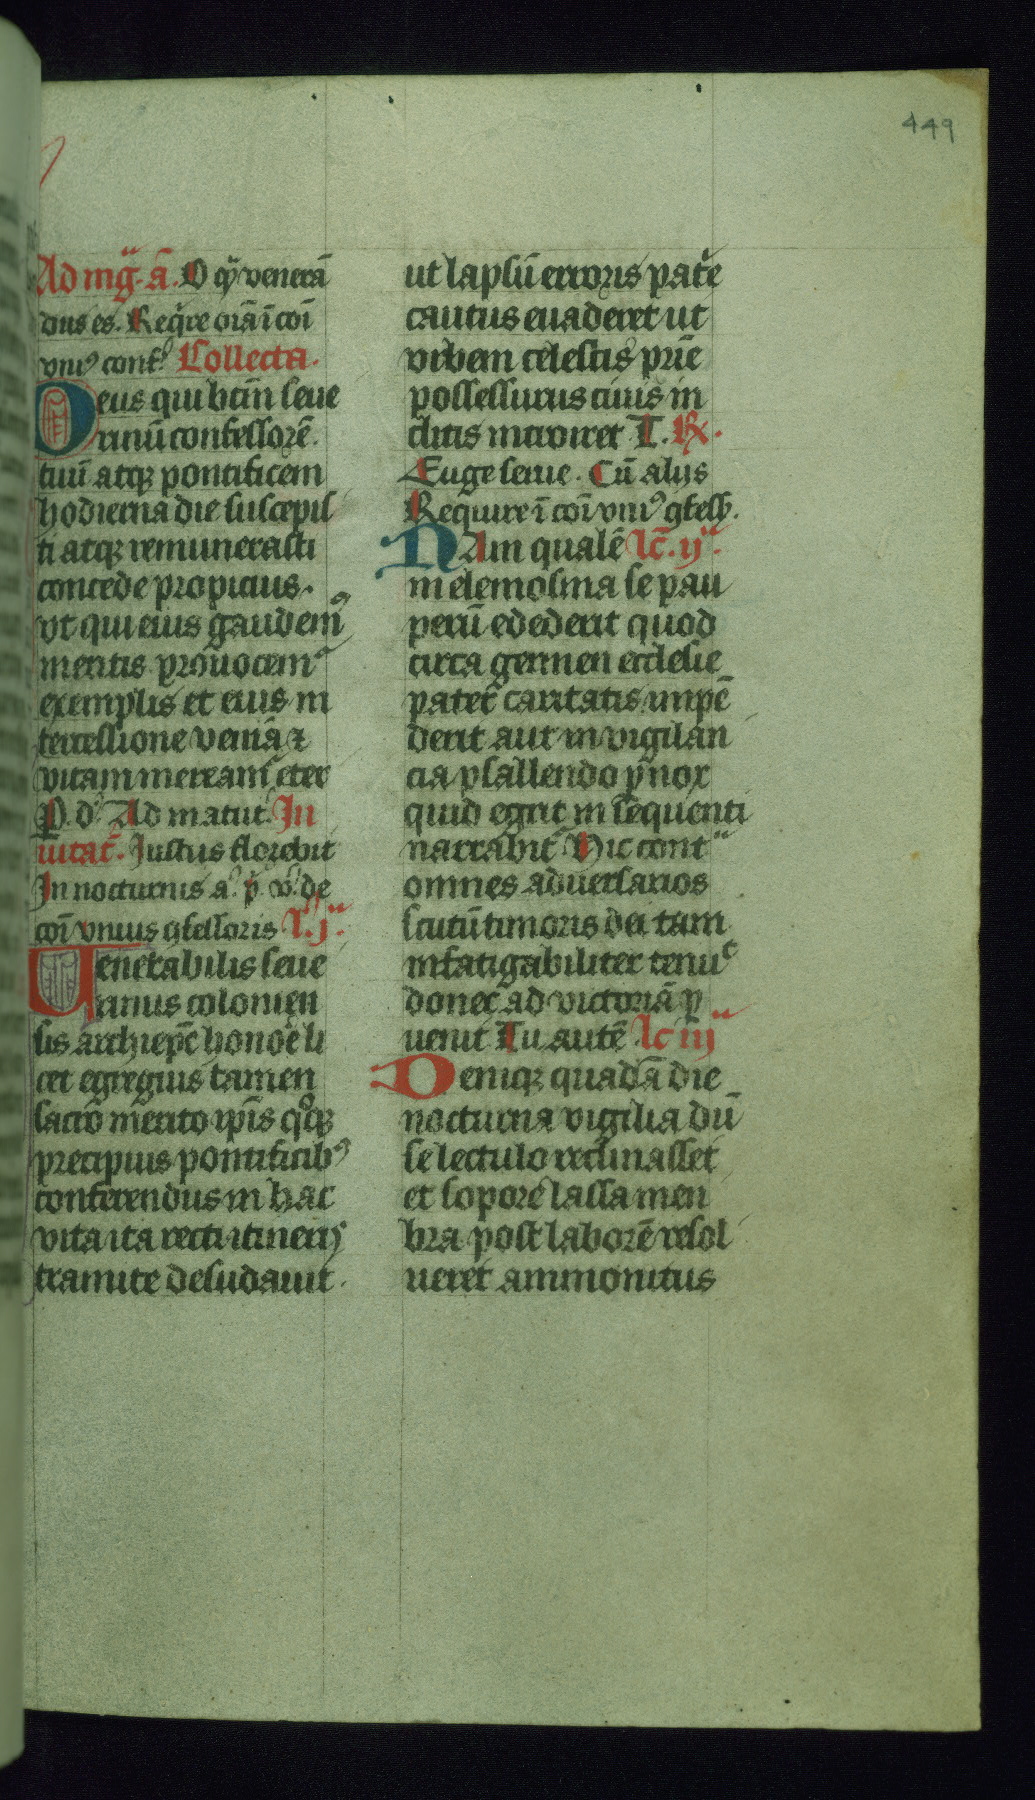 449
Ad mg̃. ã. O q̃ venerã
dus es. Reqͥre orã ĩ coĩ
vniꝰ conf. Collecta.
Deus qui btm̃ seue
rinũ confessorẽ
tuũ atqꝫ pontificem
hodierna die suscepis
ti atqꝫ remunerasti
concede propicius.
vt qui eius gaudemꝰ
meritis prouocemꝰ
exemplis et eius in
tercessione veniã ⁊
vitam mereamͬ eter
P. d. Ad matut. In
uitat̃. Justus florebit
In nocturnis a. p̃. v. de
coĩ vnius ꝯfessoris L. j.
Venerabilis seue
rinus colonien
sis archiep̃c honõe li
cet egregius tamen
sacro merito ip̃is qͦqꝫ
precipuis pontificibꝰ
conferendus in hac
vita ita recti itineris
tramite desudauit.
ut lapsũ erroris pat̾e
cautus euaderet ut
vrbem celestis pr̃ie
possessurus ciuis in
clitis intraret T. Rx.
Euge serue. Cũ alijs
Require ĩ coĩ vniꝰ ꝯfess.
NAm qualẽ Lc̃. ij.
in elemosina se pau
perũ edederit quod
circa germen ecclesie
pateͬ caritatis impẽ
derit aut in vigilan
cia psallendo p̱nox
quid egerit in sequenti
narrabitͬ Hic contͣ
omnes aduersarios
scutũ timoris dei tam
infatigabiliter tenuͭ
donec ad victoriã ꝑ
uenit Tu autẽ Lc iij
Deniqꝫ quadã die
nocturna vigilia dũ
se lectulo reclinasset
et sopore lassa men
bra post laborẽ resol
ueret ammonitus